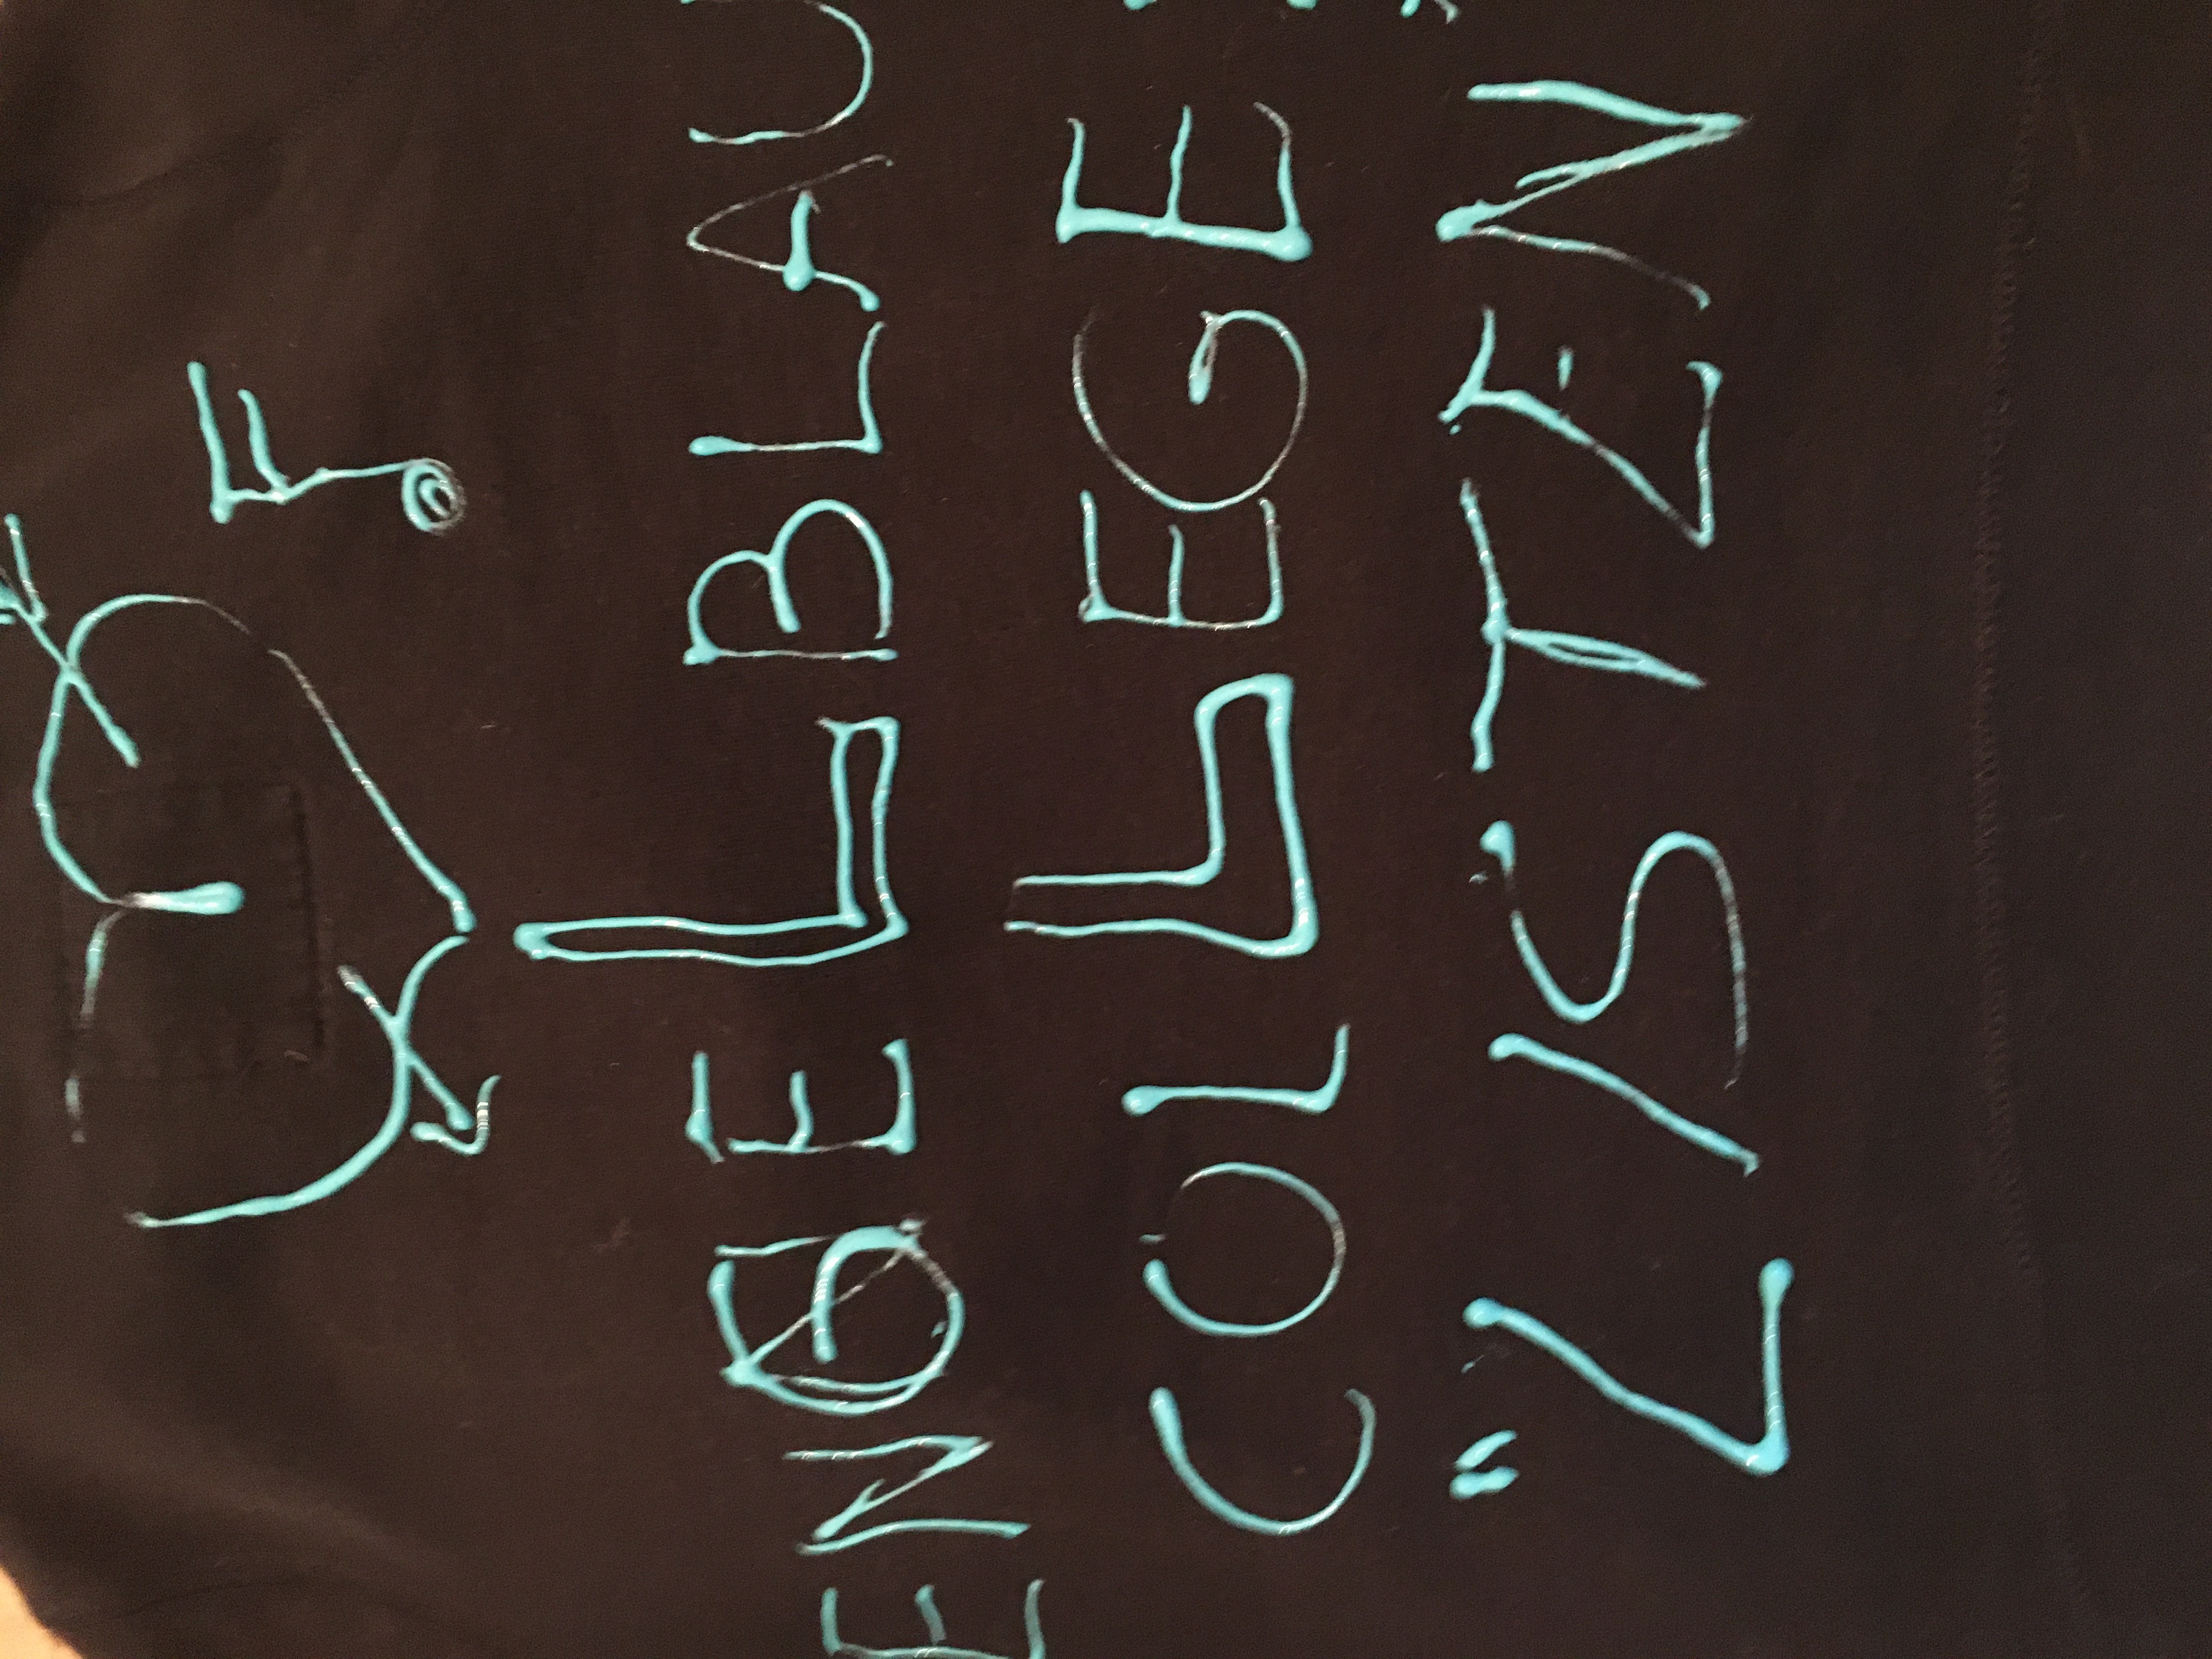 F
ENGELBLAU
COLLEGE
"LISTEN"